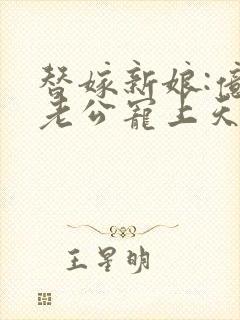 替嫁新娘:億
老公寵上天
王星明